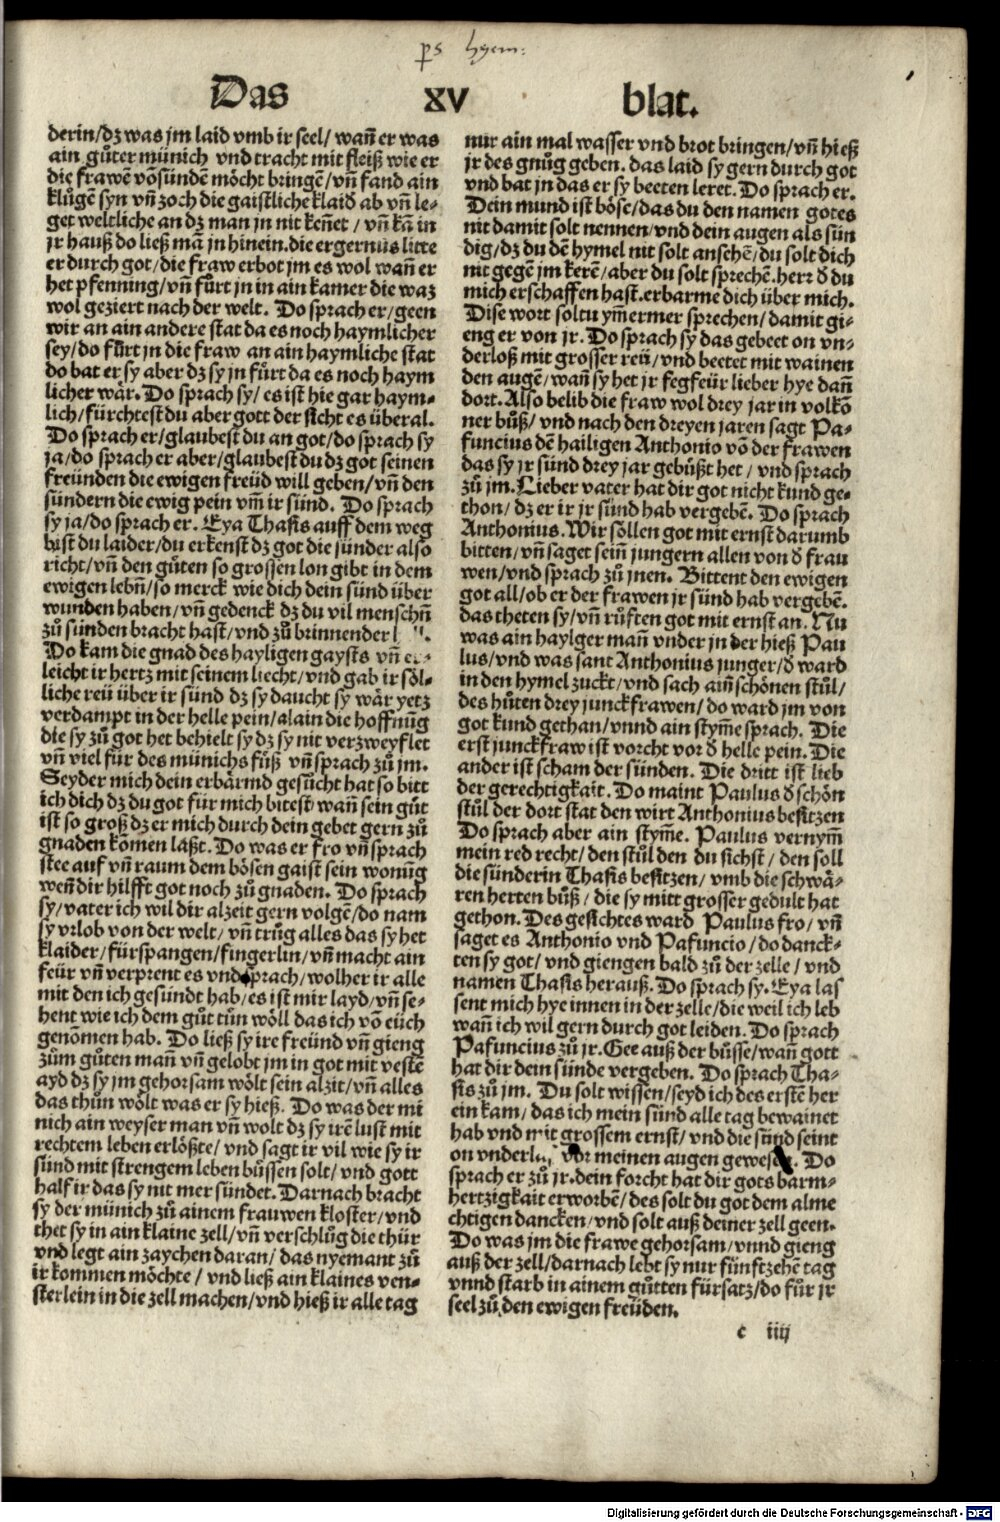 ps hyem:
Das XV blat.
derin/dz was jm laid vmb ir seel/ wañ er was
ain gůter münich vnd tracht mit fleiß wie er
die frawē võ sündē möcht bringē/vñ fand ain
klůgē syn vñ zoch die gaistliche klaid ab vñ le-
get weltliche an dz man jn nit keñet / vñ kā in
jr hauß do ließ mā jn hinein.die ergernus litte
er durch got/die fraw erbot jm es wol wañ er
het pfenning/vñ fůrt jn in ain kamer die waz
wol geziert nach der welt. Do sprach er/geen
wir an ain andere stat da es noch haymlicher
sey/do fůrt jn die fraw an ain haymliche stat
do bat er sy aber dz sy jn fůrt da es noch haym
licher wär. Do sprach sy/ es ist hie gar haym-
lich/fürchtest du aber gott der sicht es überal.
Do sprach er/glaubest du an got/do sprach sy
ja/do sprach er aber/glaubest du dz got seinen
freünden die ewigen freüd will geben/vñ den
sündern die ewig pein vm̄ ir sünd. Do sprach
sy ja/do sprach er. Eya Thasis auff dem weg
bist du laider/du erkenst dz got die sünder also
richt/vñ den gůten so grossen lon gibt in dem
ewigen lebñ/so merck wie dich dein sünd über
wunden haben/vñ gedenck dz du vil menschñ
zů sünden bracht hast/vnd zů brinnender
Do kam die gnad des hayligen gaysts vñ er-
leicht ir hertz mit seinem liecht/vnd gab ir söl-
liche reü über ir sünd dz sy daucht sy wär yetz
verdampt in der helle pein/alain die hoffnūg
die sy zů got het behielt sy dz sy nit verzweyflet
vñ viel für des münichs fůß vñ sprach zů jm.
Seyder mich dein erbärmd gesůcht hat so bitt
ich dich dz du got für mich bitest wañ sein gůt
ist so groß dz er mich durch dein gebet gern zů
gnaden kōmen läßt. Do was er fro vñ sprach
stee auf vñ raum dem bösen gaist sein wonūg
weñ dir hilfft got noch zů gnaden. Do sprach
sy/vater ich wil dir alzeit gern volgē/do nam
sy vrlob von der welt/ vñ trůg alles das sy het
klaider/fürspangen/fingerlin/vñ macht ain
feür vñ verprent es vnd sprach/wolher ir alle
mit den ich gesündt hab/es ist mir layd/vñ se-
hent wie ich dem gůt tůn wöll das ich võ eüch
genōmen hab. Do ließ sy ire freünd vñ gieng
zům gůten mañ vñ gelobt jm in got mit vestē
ayd dz sy jm gehorsam wölt sein alzit/vñ alles
das thůn wölt was er sy hieß. Do was der mi
nich ain weyser man vñ wolt dz sy irē lust mit
rechtem leben erlößte/ vnd sagt ir vil wie sy ir
sünd mit strengem leben bůssen solt/ vnd gott
half ir das sy nit mer sündet. Darnach bracht
sy der münich zů ainem frauwen kloster/vnd
thet sy in ain klaine zell/vñ verschlůg die thür
vnd legt ain zaychen daran/ das nyemant zů
ir kommen möchte / vnd ließ ain klaines ven-
sterlein in die zell machen/vnd hieß ir alle tag
nur ain mal wasser vnd brot bringen/vñ hieß
jr des gnůg geben. das laid sy gern durch got
vnd bat jn das er sy beeten leret. Do sprach er.
Dein mund ist böse/das du den namen gotes
nit damit solt nennen/vnd dein augen als sün
dig/dz du dē hymel nit solt ansehē/du solt dich
nit gegē jm kerē/aber du solt sprechē.herr d̄ du
mich erschaffen hast.erbarme dich über mich.
Dise wort soltu ym̄ermer sprechen/ damit gi-
eng er von jr. Do sprach sy das gebeet on vn-
derloß mit grosser reü/vnd beetet mit wainen
den augē/wañ sy het jr fegfeür lieber hye dañ
dort.Also belib die fraw wol drey jar in volkō
ner bůß/ vnd nach den dreyen jaren sagt Pa-
funcius dē hailigen Anthonio võ der frawen
das sy jr sünd drey jar gebüßt het / vnd sprach
zů jm.Lieber vater hat dir got nicht kund ge-
thon/ dz er ir jr sünd hab vergebē. Do sprach
Anthonius.Wir söllen got mit ernst darumb
bitten/vñ saget seiñ jungern allen von d̄ frau
wen/vnd sprach zů jnen. Bittent den ewigen
got all/ob er der frawen jr sünd hab vergebē.
das theten sy/vñ růften got mit ernst an. Nu
was ain haylger mañ vnder jn der hieß Pau
lus/vnd was sant Anthonius junger/d̄ ward
in den hymel zuckt/vnd sach aiñ schönen stůl/
des hůten drey junckfrawen/do ward jm von
got kund gethan/vnnd ain stym̄e sprach. Die
erst junckfraw ist vorcht vor d̄ helle pein. Die
ander ist scham der sünden. Die dritt ist lieb
der gerechtigkait. Do maint Paulus d̄ schön
stůl der dort stat den wirt Anthonius besitzen
Do sprach aber ain stym̄e. Paulus vernym̄
mein red recht/den stůl den du sichst/ den soll
die sünderin Thasis besitzen/ vmb die schwä-
ren herten bůß/ die sy mitt grosser gedult hat
gethon. Des gesichtes ward Paulus fro/ vñ
saget es Anthonio vnd Pafuncio/do danck-
ten sy got/vnd giengen bald zů der zelle/ vnd
namen Thasis herauß. Do sprach sy. Eya las
sent mich hye innen in der zelle/die weil ich leb
wañ ich wil gern durch got leiden. Do sprach
Pafuncius zů jr.Gee auß der bůsse/wañ gott
hat dir dein sünde vergeben. Do sprach Tha-
sis zů jm. Du solt wissen/seyd ich des erstē her
ein kam/ das ich mein sünd alle tag bewainet
hab vnd mit grossem ernst/ vnd die sünd seint
on vnderla vor meinen augen gewesen. Do
sprach er zů jr.dein forcht hat dir gots barm-
hertzigkait erworbē/des solt du got dem alme
chtigen dancken/vnd solt auß deiner zell geen.
Do was jm die frawe gehorsam/vnnd gieng
auß der zell/darnach lebt sy nur fünftzehē tag
vnnd starb in ainem gůtten fürsatz/do fůr jr
seel zů den ewigen freüden.
c iiij
Digitalisierung gefördert durch die Deutsche Forschungsgemeinschaft - DFG